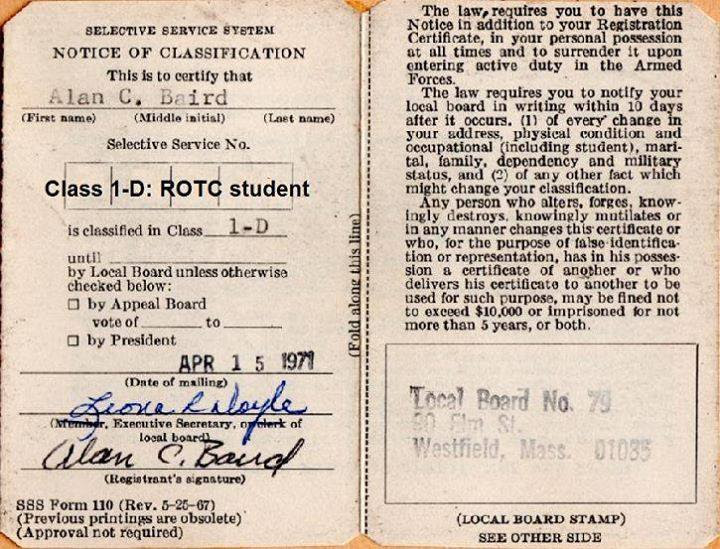 SELECTIVE SERVICE SYSTEM
NOTICE OF CLASSIFICATION
This is to certify that
Alan C. Baird
(First name) (Middle initial) (Last name)
Selective Service No.
Class 1-D: ROTC student
is classified in Class 1-D
until
by Local Board unless otherwise
checked below:
☐ by Appeal Board
vote of to
☐ by President
APR 15 1971
(Date of mailing)
(Member, Executive Secretary, or clerk of
local board)
Alan C. Baird
(Registrant's signature)
SSS Form 110 (Rev. 5-25-67)
(Previous printings are obsolete)
(Approval not required)
(Fold along this line)
The law requires you to have this
Notice in addition to your Registration
Certificate, in your personal possession
at all times and to surrender it upon
entering active duty in the Armed
Forces.
The law requires you to notify your
local board in writing within 10 days
after it occurs, (1) of every change in
your address, physical condition and
occupational (including student), mari-
tal, family, dependency and military
status, and (2) of any other fact which
might change your classification.
Any person who alters, forges, know-
ingly destroys, knowingly mutilates or
in any manner changes this certificate or
who, for the purpose of false identifica-
tion or representation, has in his posses-
sion a certificate of another or who
delivers his certificate to another to be
used for such purpose, may be fined not
to exceed $10,000 or imprisoned for not
more than 5 years, or both.
Local Board No. 79
Elm St.
Westfield, Mass. 01085
(LOCAL BOARD STAMP)
SEE OTHER SIDE